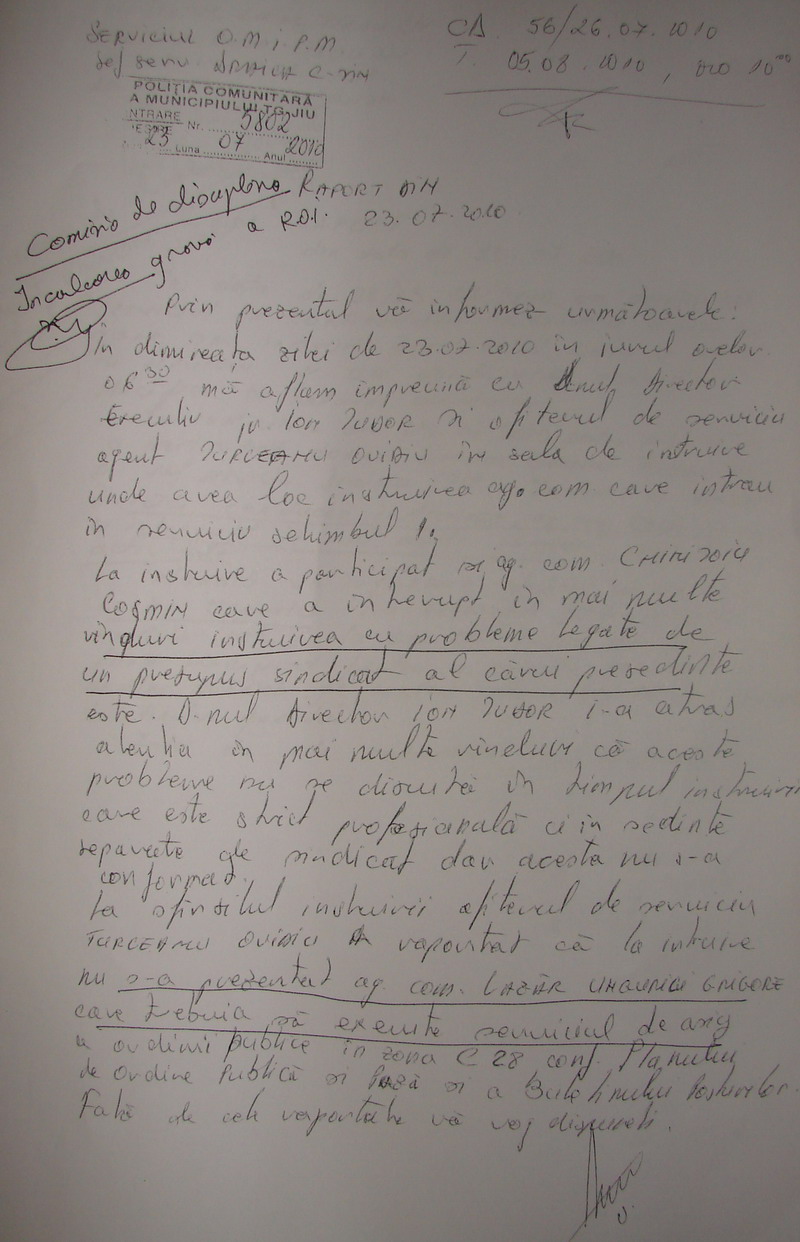 SERVICIUL O.M.I.P.M.
Șef serv C-TIN
CA 56/26.07.2010
T. 05.08.2010, ora 10⁰⁰
POLIȚIA COMUNITARĂ
A MUNICIPIULUI TG-JIU
INTRARE Nr. 5802
23 Luna 07 Anul 2010
Comisia de disciplina
Incalcarea gravă a R.O.I.
RAPORT DIN
23.07.2010
Prin prezentul vă informez următoarele:
În dimineața zilei de 23.07.2010 în jurul orelor
06³⁰ mă aflam împreună cu Dnul Director
Executiv jr ION TUDOR și ofițerul de serviciu
agent TURCEANU OVIDIU în sala de intruire
unde avea loc instruirea ag. com care intrau
în serviciu schimbul 1.
La instruire a participat și ag. com.
COSMIN care a întrerupt în mai multe
rînduri instruirea cu probleme legate de
un presupus sindicat al cărui președinte
este. D-nul Director ION TUDOR i-a atras
atenția în mai multe rînduri că aceste
probleme nu se discută în timpul instruirii
care este strict profesională ci în ședințe
separate ale sindicat dar acesta nu s-a
conformat.
La sfîrșitul instruirii ofițerul de serviciu
TURCEANU OVIDIU A raportat că la intruire
nu s-a prezentat ag. com. LAZĂR GRIGORE
care trebuia să execute serviciul de asig
a ordinii publice în zona C 28 conf. Planului
de Ordine Publică și Pază și a Buletinului Posturilor.
Față de cele raportate vă rog dispuneți.